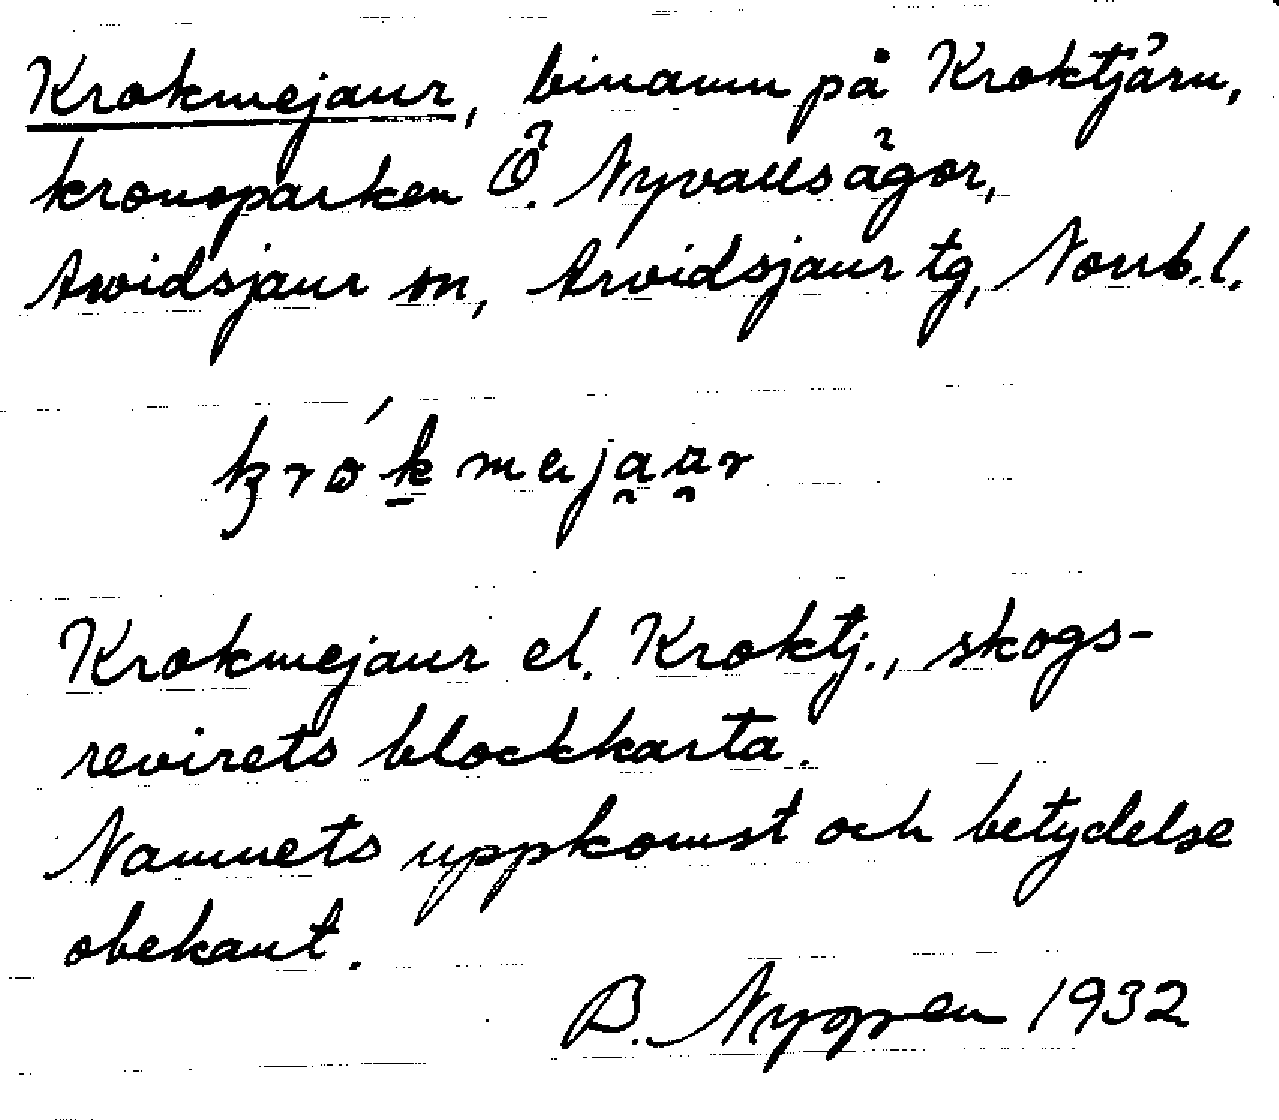 Krokmejaur, binamn på Kroktjärn,
kronoparken Ö. Nyvallsägor,
Arvidsjaur sn, Arvidsjaur tg, Norrb.l.
krókmejaur
Krokmejaur el. Kroktj., skogs-
revirets blockkarta.
Namnets uppkomst och betydelse
obekant.
B. Nygren 1932